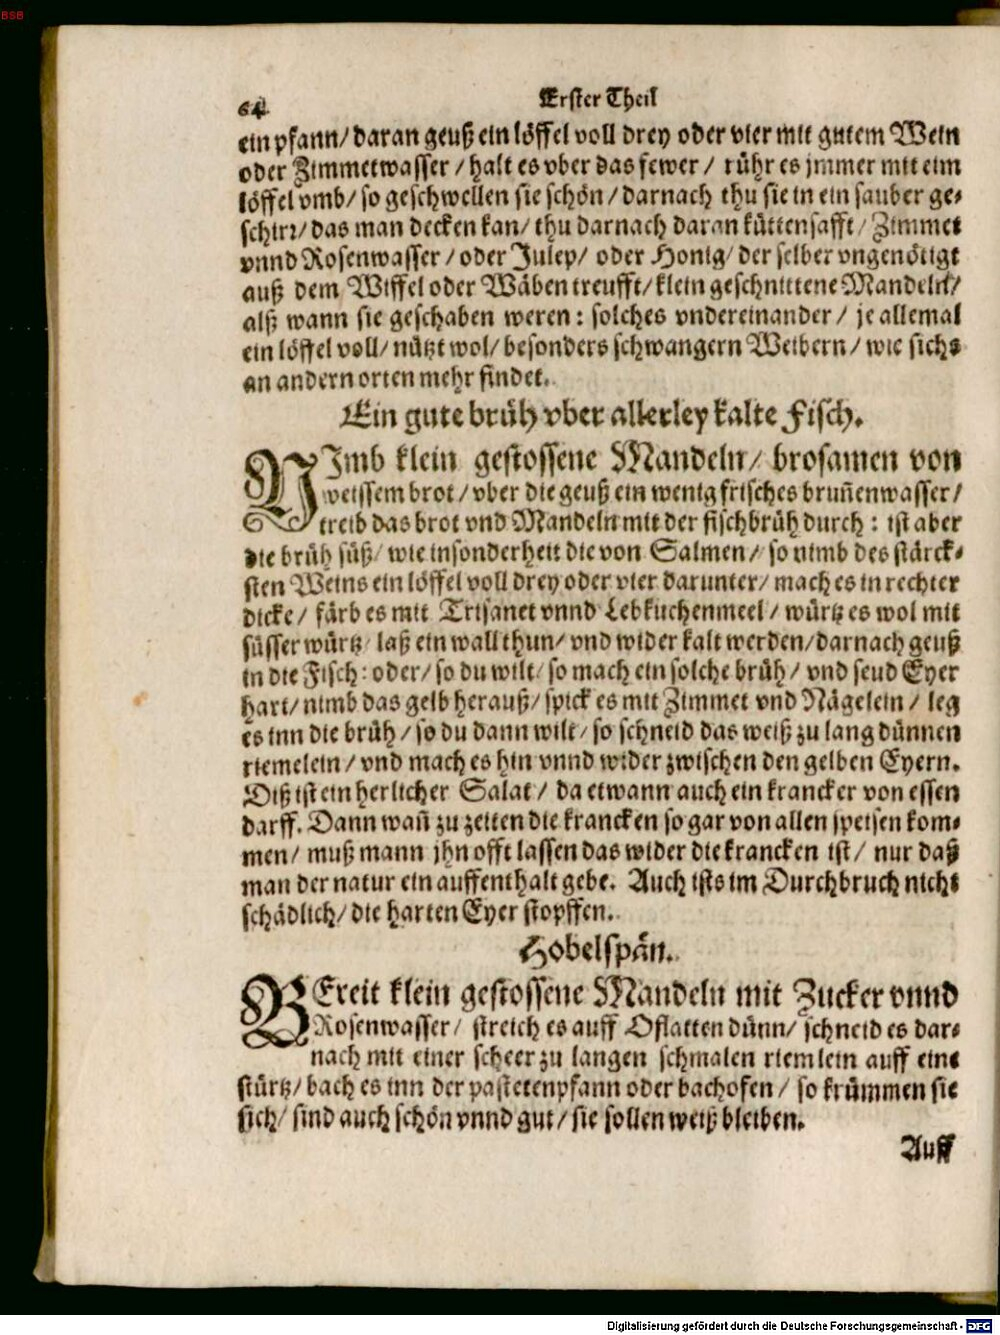 BSB
64 Erster Theil
ein pfann/ daran geuß ein löffel voll drey oder vier mit gutem Wein
oder Zimmetwasser / halt es vber das fewer / rühr es jmmer mit eim
löffel vmb/ so geschwellen sie schön / darnach thu sie in ein sauber ge-
schirr/ das man decken kan/ thu darnach daran küttensafft / Zimmet
vnnd Rosenwasser / oder Julep/ oder Honig/ der selber vngenötigt
auß dem Wiffel oder Wäben treufft/ klein geschnittene Mandeln/
alß wann sie geschaben weren: solches vndereinander / je allemal
ein löffel voll/ nützt wol/ besonders schwangern Weibern / wie sichs
an andern orten mehr findet.
Ein gute brüh vber allerley kalte Fisch.
NImb klein gestossene Mandeln/ brosamen von
weissem brot / vber die geuß ein wenig frisches brun̄enwasser /
treib das brot vnd Mandeln mit der fischbrüh durch: ist aber
die brüh süß/ wie insonderheit die von Salmen/ so nimb des stärck-
sten Weins ein löffel voll drey oder vier darunter/ mach es in rechter
dicke / färb es mit Trisanet vnnd Lebkuchenmeel / würtz es wol mit
süsser würtz/ laß ein wall thun/ vnd wider kalt werden/ darnach geuß
in die Fisch: oder/ so du wilt/ so mach ein solche brüh / vnd seud Eyer
hart/ nimb das gelb herauß/ spick es mit Zimmet vnd Nägelein / leg
es inn die brüh / so du dann wilt/ so schneid das weiß zu lang dünnen
riemelein / vnd mach es hin vnnd wider zwischen den gelben Eyern.
Diß ist ein herlicher Salat / da etwann auch ein krancker von essen
darff. Dann wan̄ zu zeiten die krancken so gar von allen speisen kom-
men / muß mann jhn offt lassen das wider die krancken ist / nur daß
man der natur ein auffenthalt gebe. Auch ists im Durchbruch nicht
schädlich/ die harten Eyer stopffen.
Hobelspän.
BEreit klein gestossene Mandeln mit Zucker vnnd
Rosenwasser / streich es auff Oflatten dünn/ schneid es dar-
nach mit einer scheer zu langen schmalen riemlein auff eine
stürtz/ bach es inn der pastetenpfann oder bachofen / so krümmen sie
sich/ sind auch schön vnnd gut / sie sollen weiß bleiben.
Auff
Digitalisierung gefördert durch die Deutsche Forschungsgemeinschaft - DFG